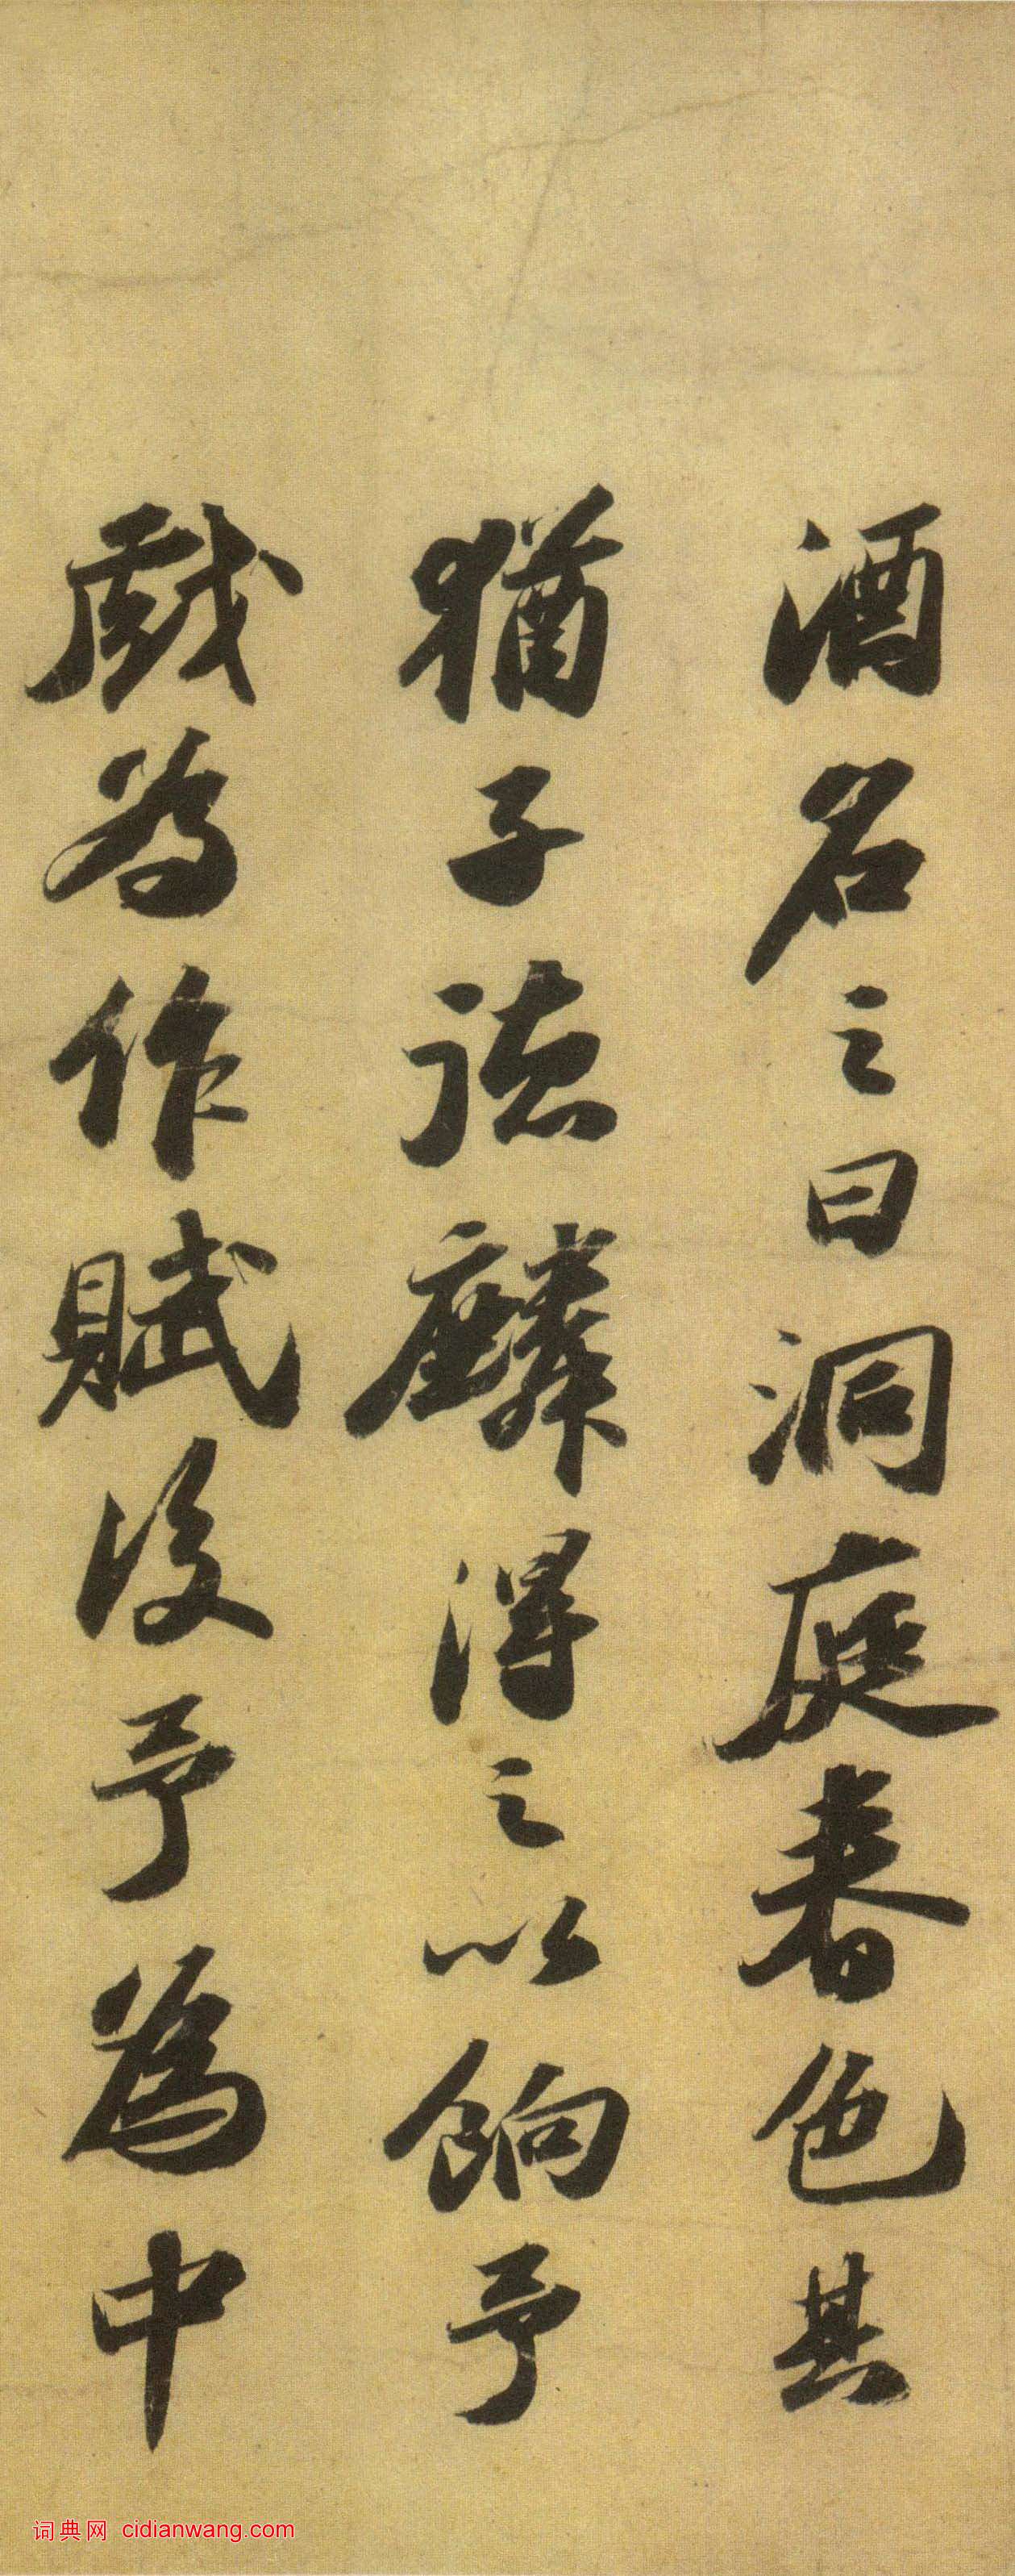 酒名之曰洞庭春色其
猶子德麟得之以餉予
戲為作賦後予為中
词典网 cidianwang.com